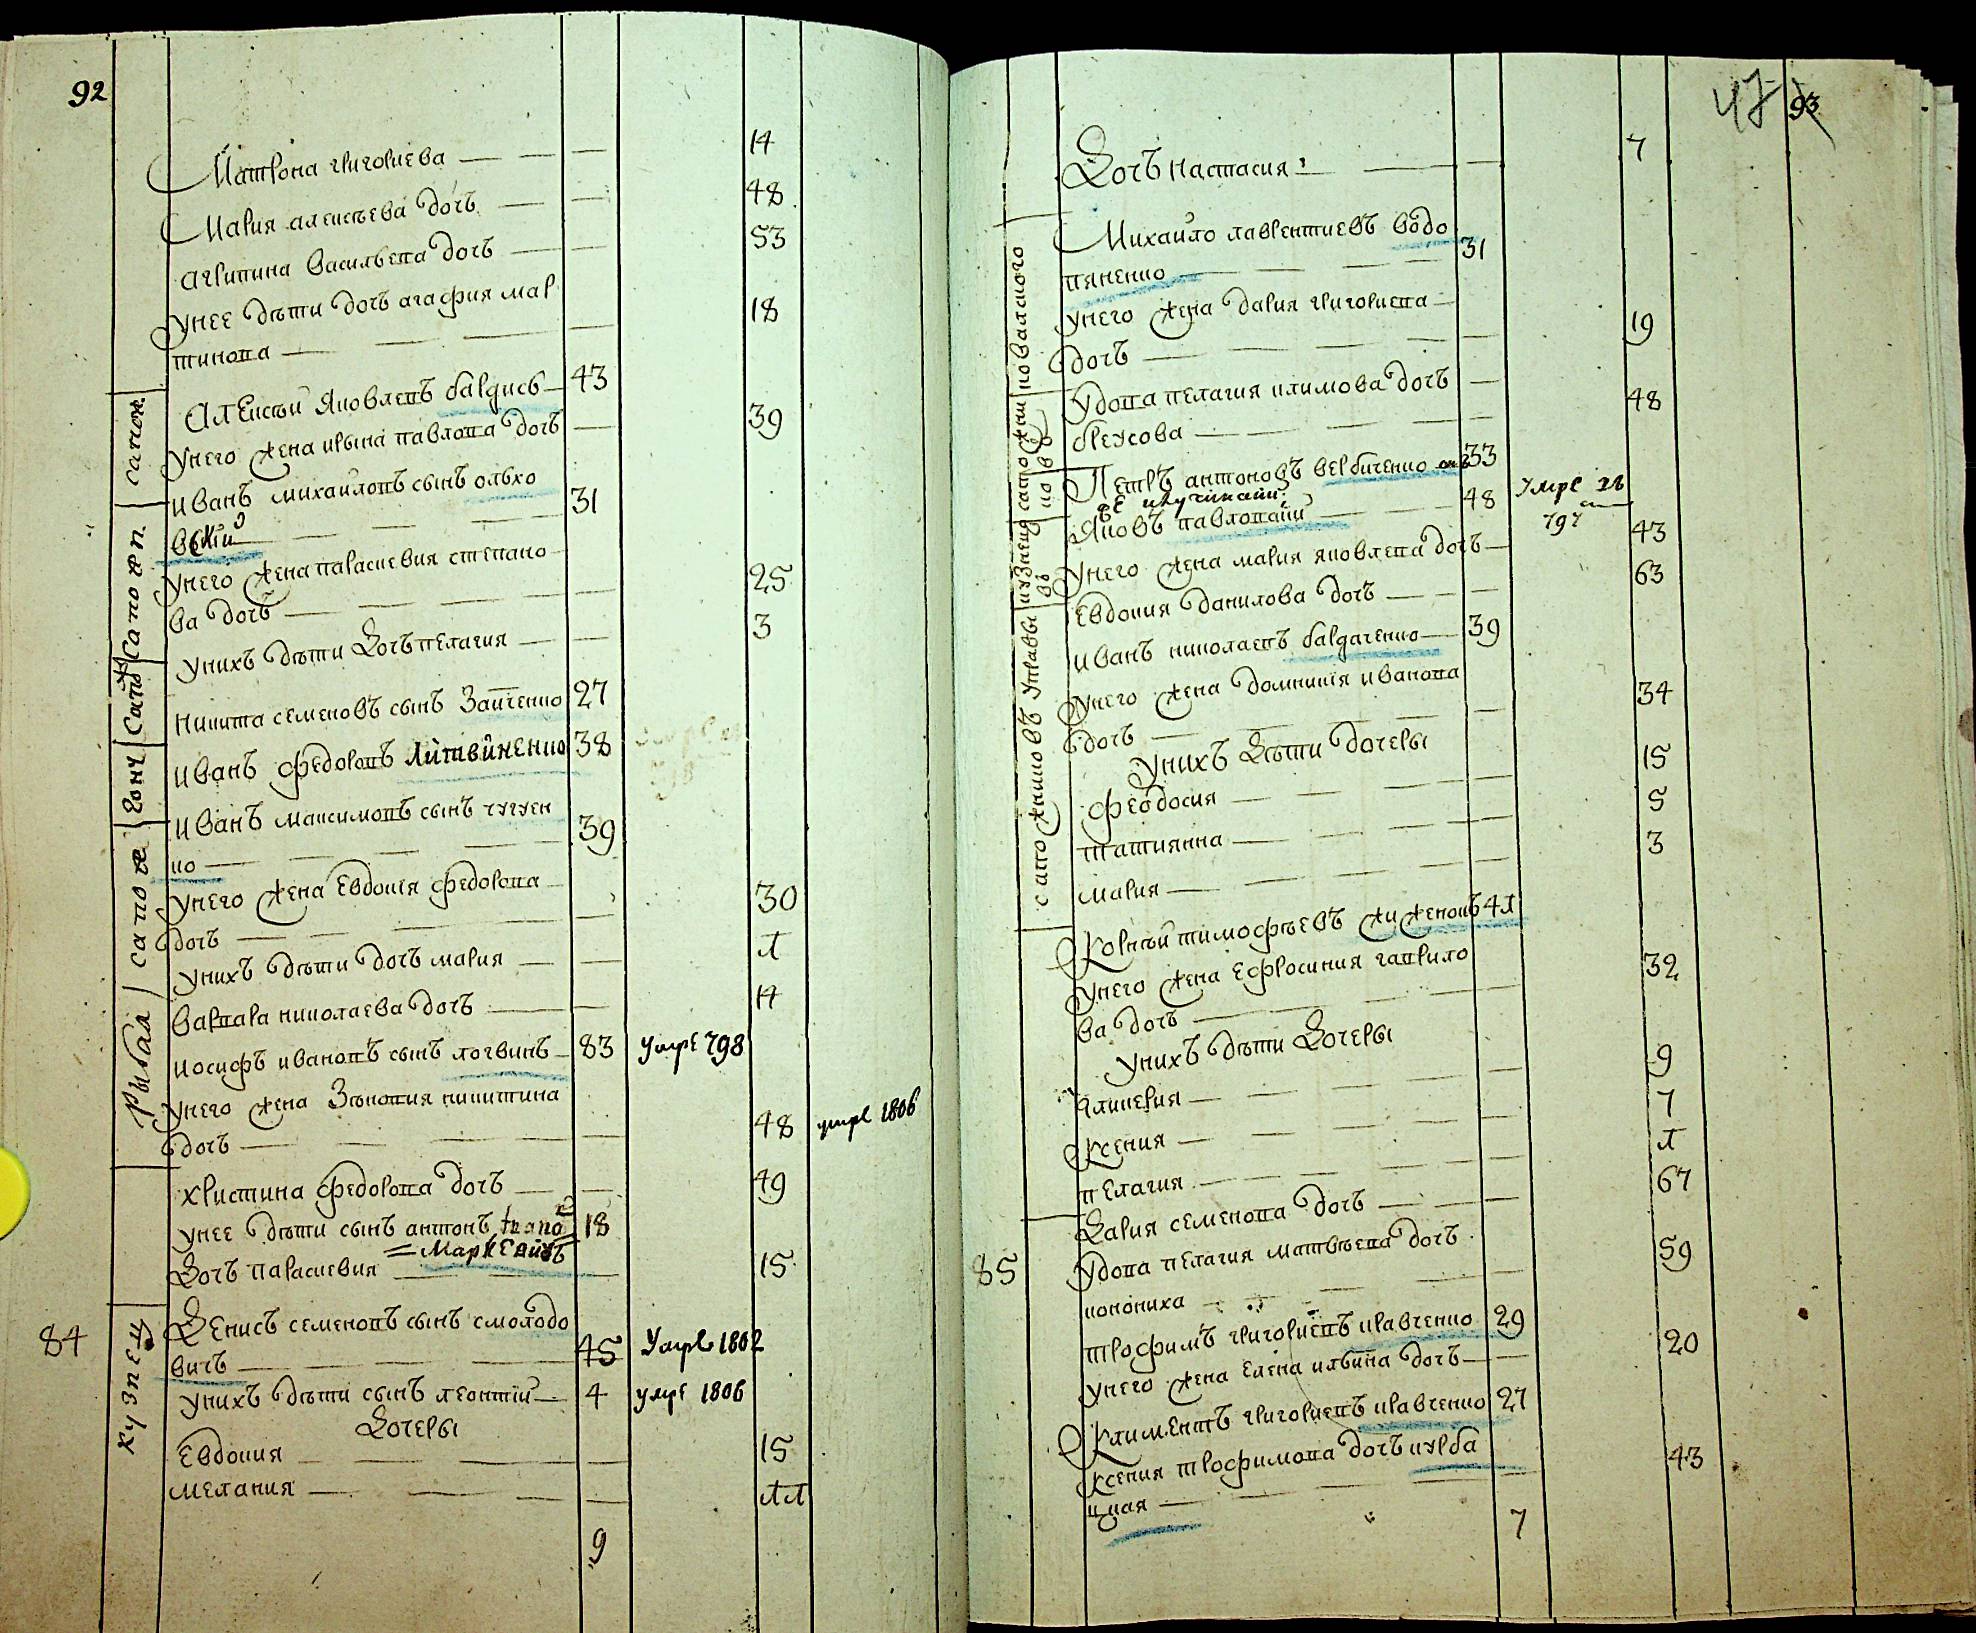 92
Матрона григориева — — — 14
Мария алексѣева дочъ — — 48
агрипина васильева дочъ — — 53
унее дѣти дочъ агафия мар
тинова — — — — 18
сапож.
Алексѣй яковлевъ барди 43
унего жена ирына павлова дочъ — 39
сапожн.
иванъ михайловъ сынъ ольхо
вскій — — — 31
унего жена параскевия степано
ва дочъ — — — — 25
унихъ дѣти дочъ пелагия — — 3
сапож
никита семеновъ сынъ зайченко 27
гонч
иванъ федоровъ литвиненко 38
сапож
иванъ максимовъ сынъ чугуен
ко — — — — 39
унего жена евдокія федорова
дочъ — — — — 30
унихъ дѣти дочъ мария — — 1
варвара николаева дочъ — — 14
рыбал
иосифъ ивановъ сынъ логвинъ — 83 умре 798
унего жена зѣновия никитина
дочъ — — — — 48 умре 1806
христина федорова дочъ — — 49
унее дѣти сынъ антонъ 18
= Маркевичъ
дочъ параскевия — — — 15
84
кузнец
денисъ семеновъ сынъ смолодо
вичъ — — — — 45 умре 1802
унихъ дѣти сынъ леонтій — 4 умре 1806
дочеры
евдокия — — — — 15
мелания — — — — 11
9
47
93
дочъ настасия — — — 7
ковалского
Михайло лаврентиевъ водо
пяненко — — — 31
унего жена дария григориева —
дочъ — — — — 19
удова пелагия климова дочъ —
бреусова — — — — 48
сапожни
ковъ
Петръ антоновъ вербиченко 33
кузнецо
въ
яковъ павловъ — — 48 умре
797
унего жена мария яковлева дочъ — 43
евдокия данилова дочъ — — 63
сапожниковъ управы
иванъ николаевъ бардаченко — 39
унего жена домникія иванова
дочъ — — — — 34
унихъ дѣти дочеры
феодосия — — — — 15
татиянна — — — — 5
мария — — — — 3
корнѣй тимофѣевъ жиженокъ 41
унего жена ефросиния гаврило
ва дочъ — — — — 32
унихъ дѣти дочеры
гликерия — — — — 9
ксения — — — — 7
пелагия — — — — 1
дария семенова дочъ — — — 67
85
удова пелагия матвѣева дочъ
конониха — — — 59
трофимъ григориевъ кравченко 29
унего жена елена ильина дочъ — — 20
климентъ григориевъ кравченко 27
ксения трофимова дочъ курба
цкая — — — 43
7